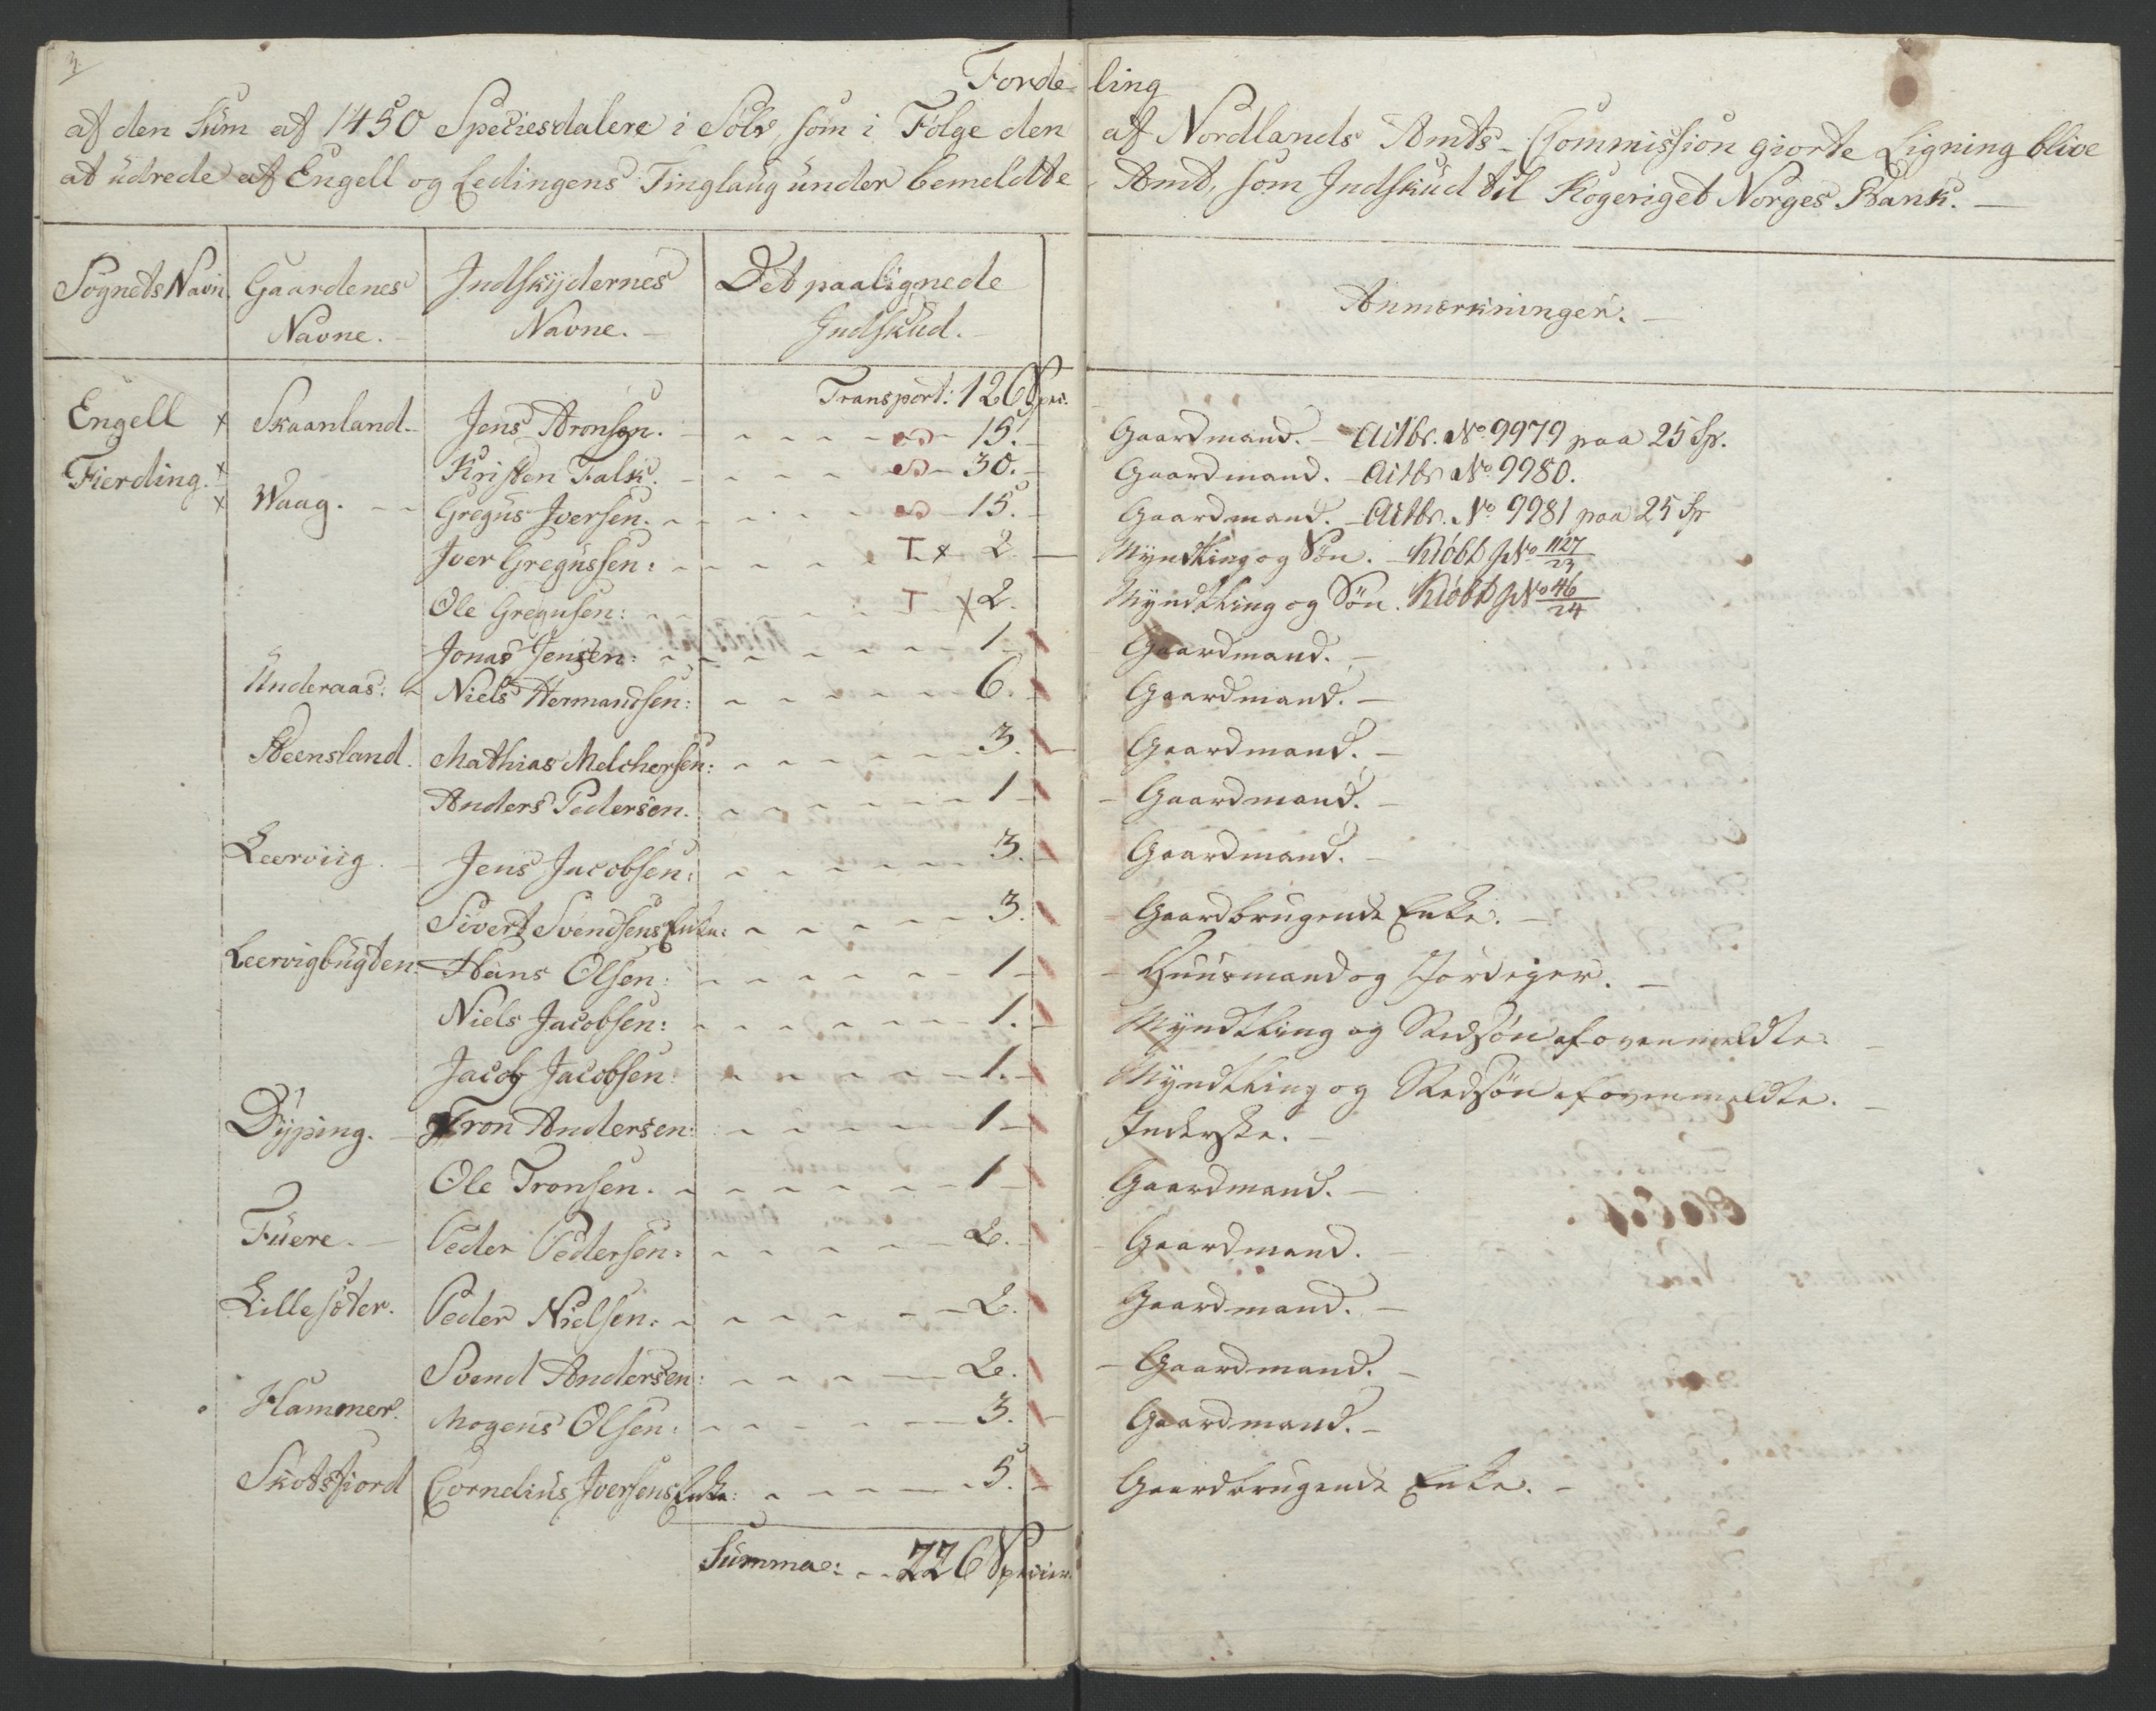 3
Fordeling
af den Sum af 1450 Speciesdalere i Sølv, som i Følge den af Nordlands Amts-Commission giorte Ligning blive
at udrede af Engell og Ledingens Tinglaug under bemeldte Amt, som Indskud til Kogeriget Norges Bank. —
Sognets Navn. Gaardenes Navne. Indskydernes Navne. Det paalignede Indskud. Anmærkninger.
Transport: 126 Spec.
Engell Skaanland. Jens Aronsen. 15. Gaardmand. — Actbr. No 9979 paa 25 Sp.
Fierding. Kristen Falk. 30. Gaardmand. — Actbr No 9980.
Waag. Gregus Iversen. 15. Gaardmand. — Actbr. No 9981 paa 25 Sp
Iver Gregussen: T x 2. Myndtling og Søn. Kiøbt p No 1127/23
Ole Gregusen: T x 2. Myndtling og Søn. Kiøbt p No 46/24
Jonas Jensen: 1. Gaardmand.
Underaas. Niels Hermandsen: 6. Gaardmand.
Steensland. Mathias Melchersen: 3. Gaardmand.
Anders Pedersen. 1 Gaardmand.
Leerviig. Jens Jacobsen: 3. Gaardmand.
Sivert Svendsens Enke: 3. Gaardbrugende Enke.
Leervigbugten. Hans Olsen: 1 Huusmand og Jordejer.
Niels Jacobsen: 1. Myndtling og Stedsøn af ovenmeldte.
Jacob Jacobsen: 1. Myndtling og Stedsøn af ovenmeldte.
Dyping. Tron Andersen: 1 Inderste.
Ole Tronsen. 1 Gaardmand.
Fuere. Peder Pedersen: 2. Gaardmand.
Lillesøter. Peder Nielsen: 2. Gaardmand.
Svend Andersen: 2. Gaardmand.
Hammer. Mogens Olsen: 3. Gaardmand.
Skotsfiord Cornelius Iversens Enke: 5. Gaardbrugende Enke.
Summa: 226 Specier.